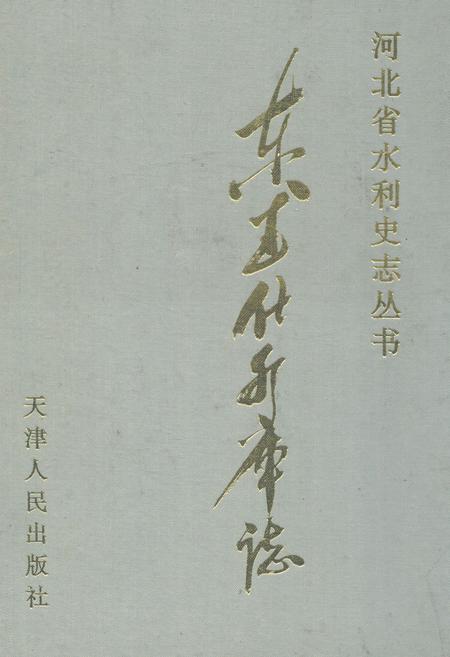 河北省水利史志丛书
东武仕水库誌
天津人民出版社